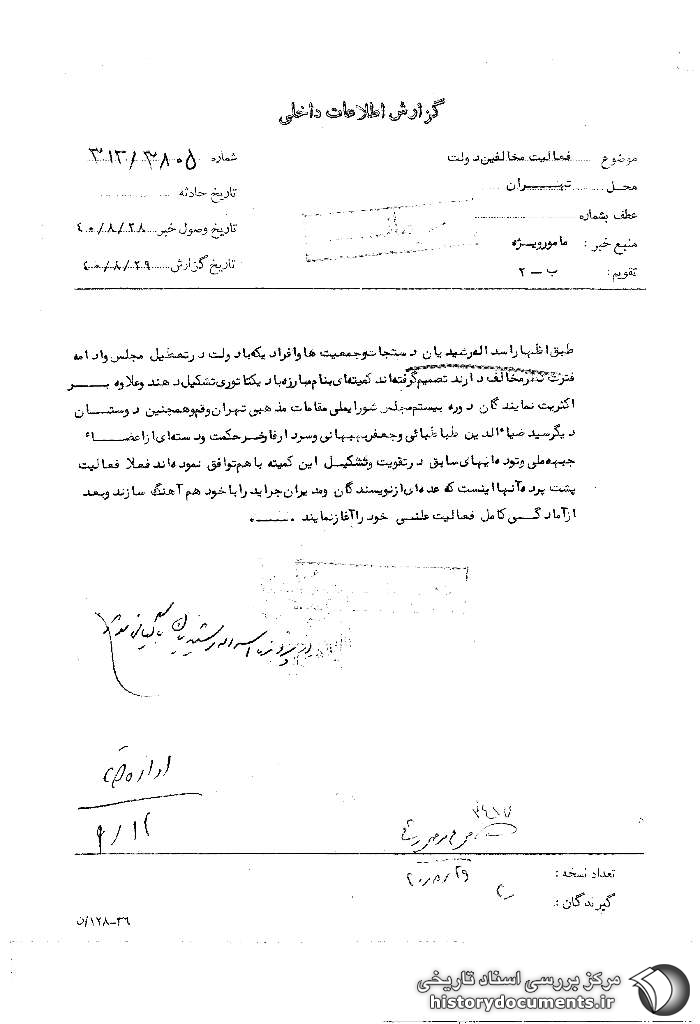 گزارش اطلاعات داخلی
موضوع ..... فعالیت مخالفین دولت
شماره ۳۱۲/۳۸۰۵
محل ..... تهـــران
تاریخ حادثه
عطف بشماره
تاریخ وصول خبر ۴۰/۸/۲۸
منبع خبر : مامور ویـژه
تاریخ گزارش ۴۰/۸/۲۹
تقویم : ب – ۲
طبق اظهار اسداله رشیدیان دستجات و جمعیت ها و افرادیکه با دولت در تعطیل مجلس و ادامه
فترت نظر مخالف دارند تصمیم گرفته‌اند کمیته‌ای بنام مبارزه با دیکتاتوری تشکیل دهند و علاوه بـــر
اکثریت نمایندگان دوره بیستم مجلس شورایملی مقامات مذهبی تهران و قم و همچنین دوستـــان
دیگر سید ضیاءالدین طباطبائی و جعفر بهبهانی و سردار فاخر حکمت و دسته‌ای از اعضـــاء
جبهه ملی و توده ایهای سابق در تقویت و تشکیـل این کمیته با هم توافق نموده‌اند فعلا فعالیت
پشت پرده آنها اینست که عده‌ای از نویسندگان و مدیران جراید را با خود هم آهنگ سازند و بعد
از آمادگـی کامل فعالیت علنـی خود را آغاز نمایند .
در پرونده اسداله رشیدیان بایگانی شود
اداره
۹/۱۲
تعداد نسخه :
گیرندگان :
۳۶–۱۲۸/ن
مرکز بررسی اسناد تاریخی
historydocuments.ir